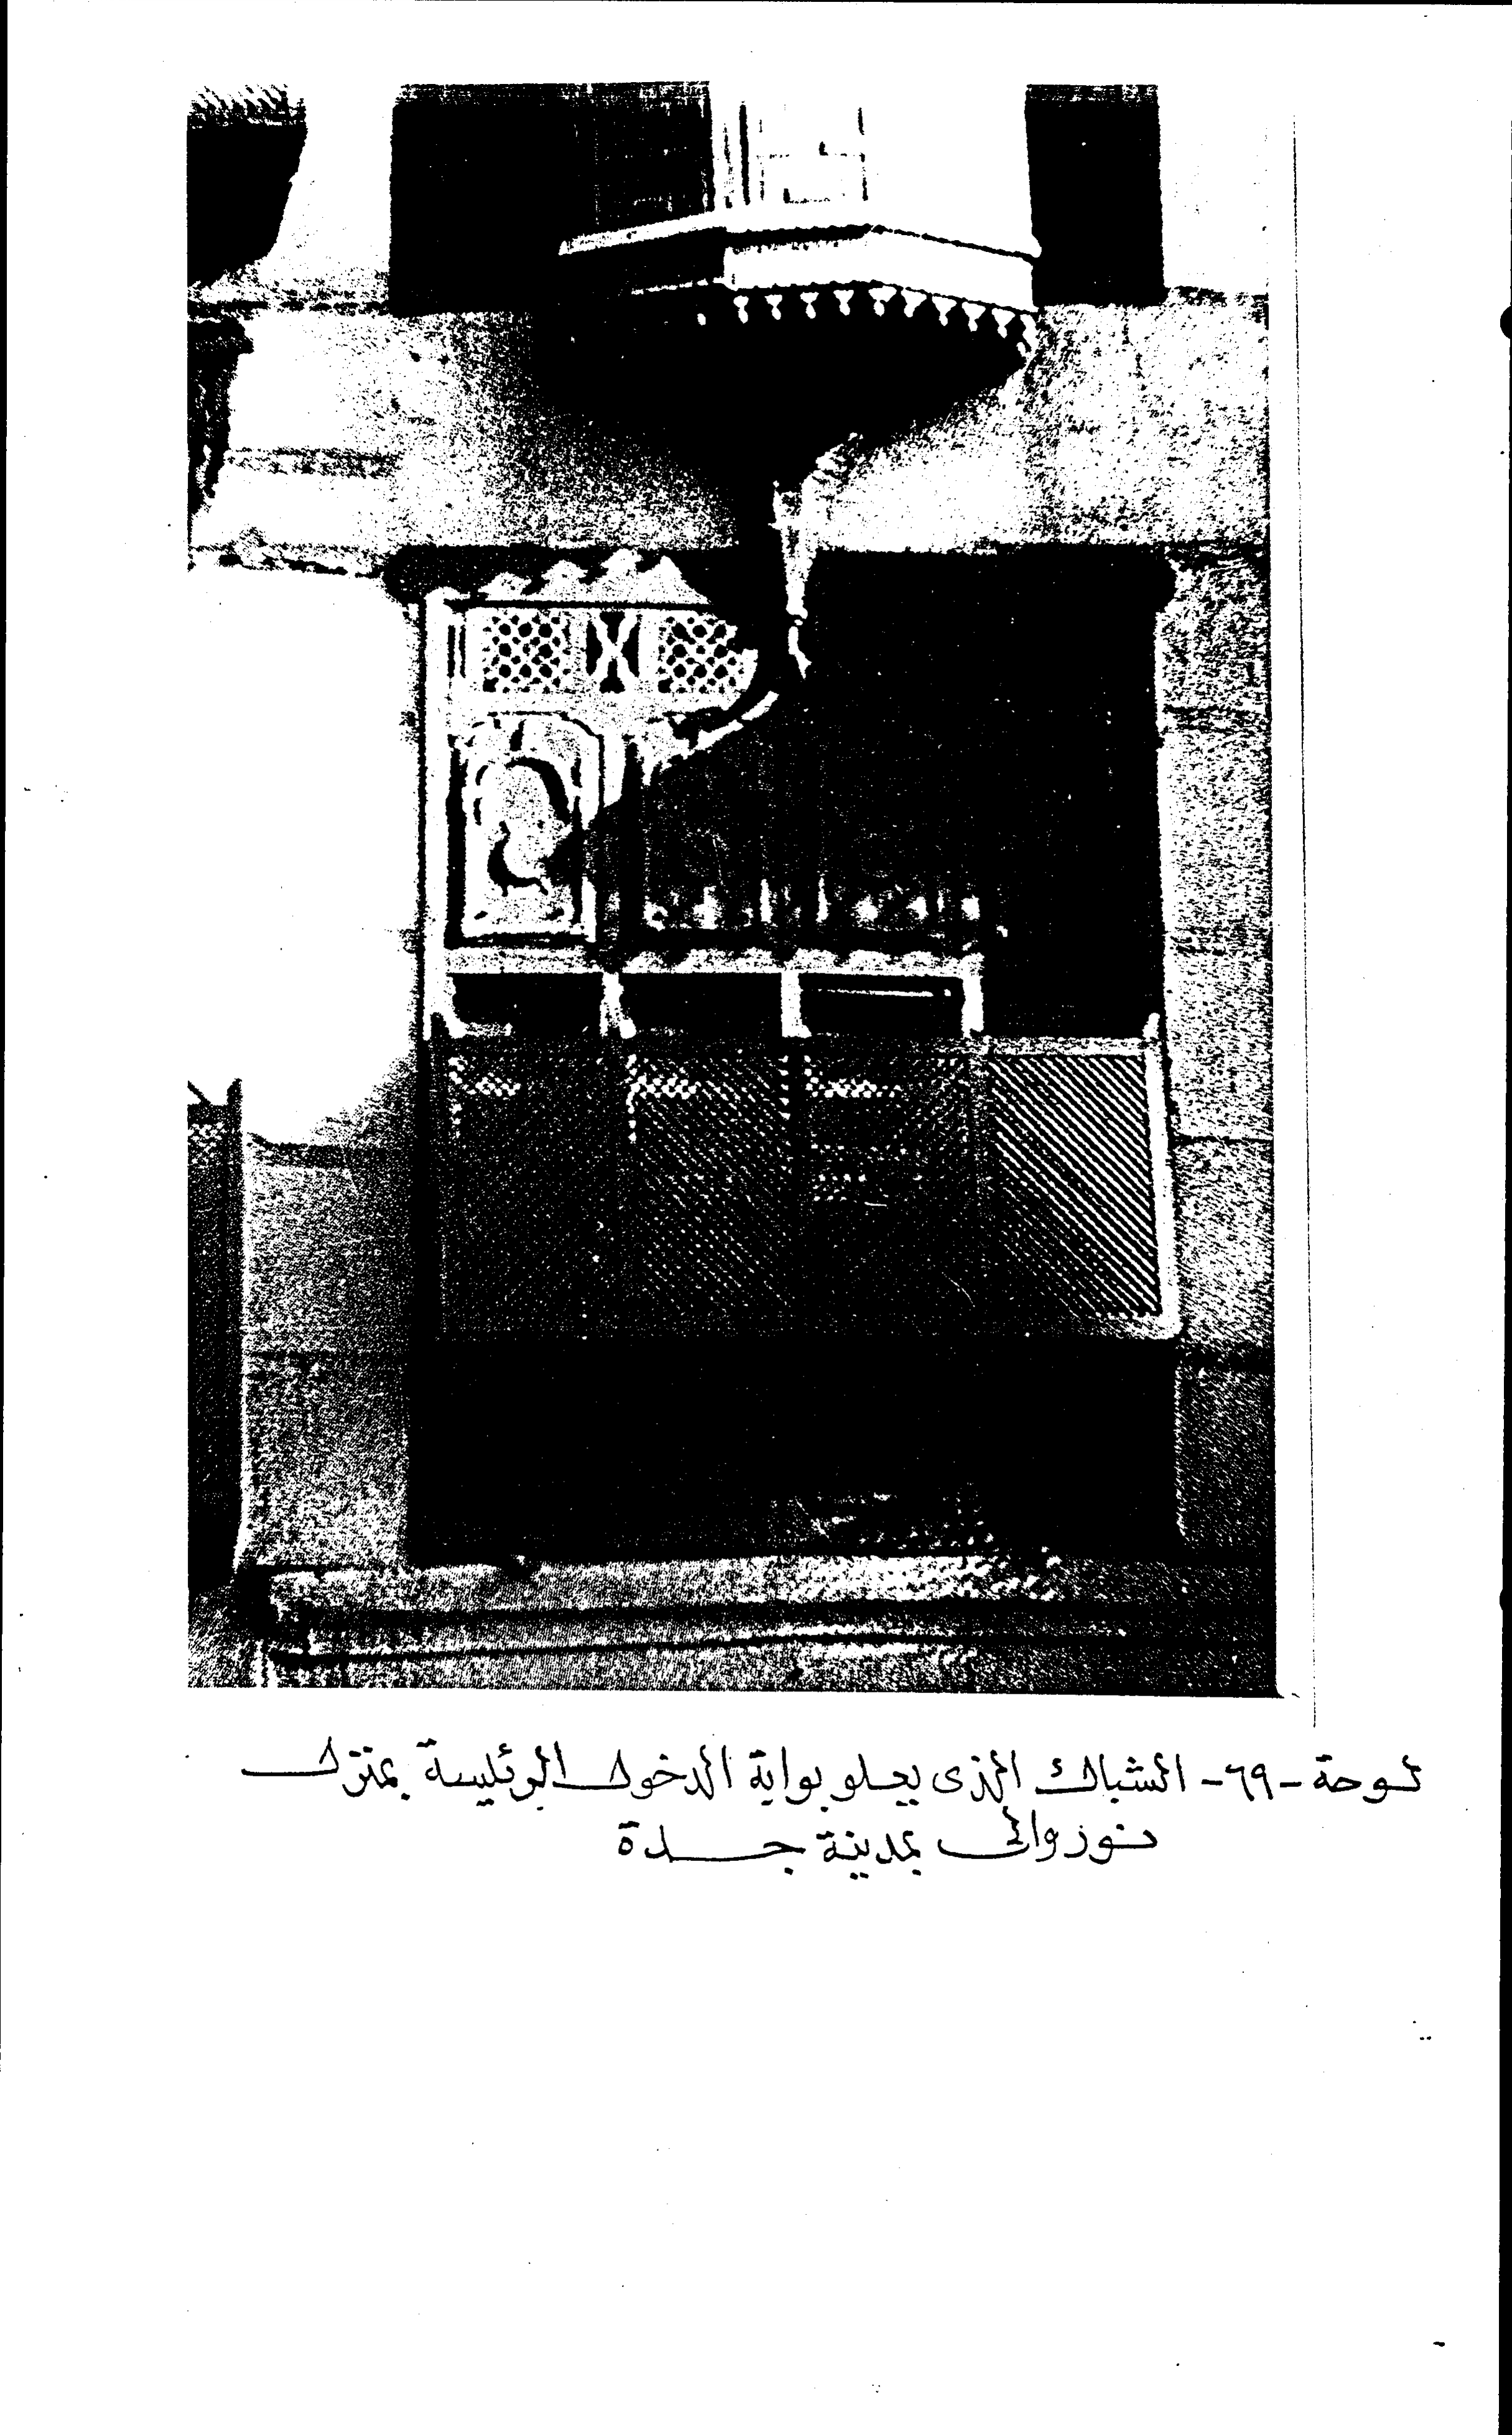 لوحة -٦٩- الشباك الذى يعلو بوابة الدخول الرئيسة بمنزل
نوزوالى بمدينة جدة